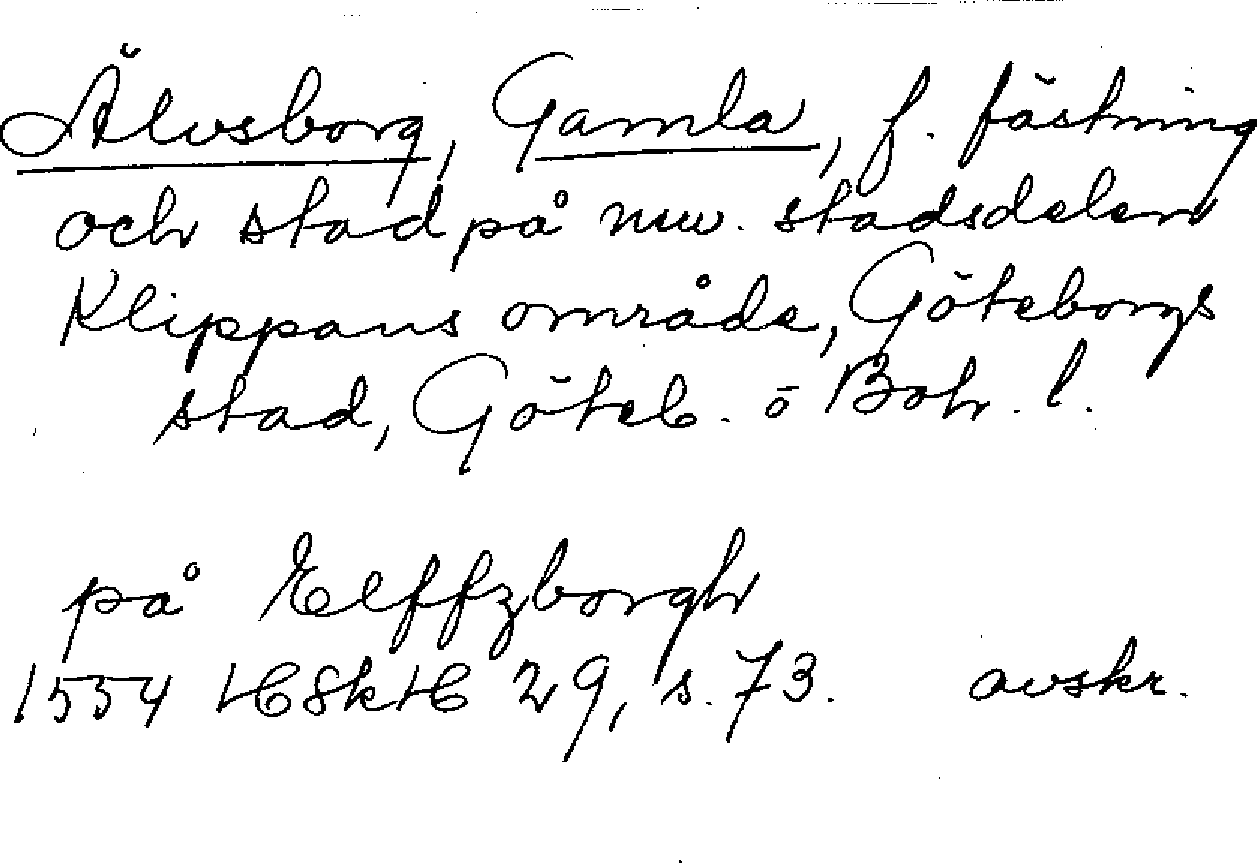 Älvsborg, Gamla, f. fästning
och stad på nuv. stadsdelen
Klippans område, Göteborgs
stad, Göteb. o Boh. l.
på Elffzborgh
1554 HSkH 29, s. 73. avskr.